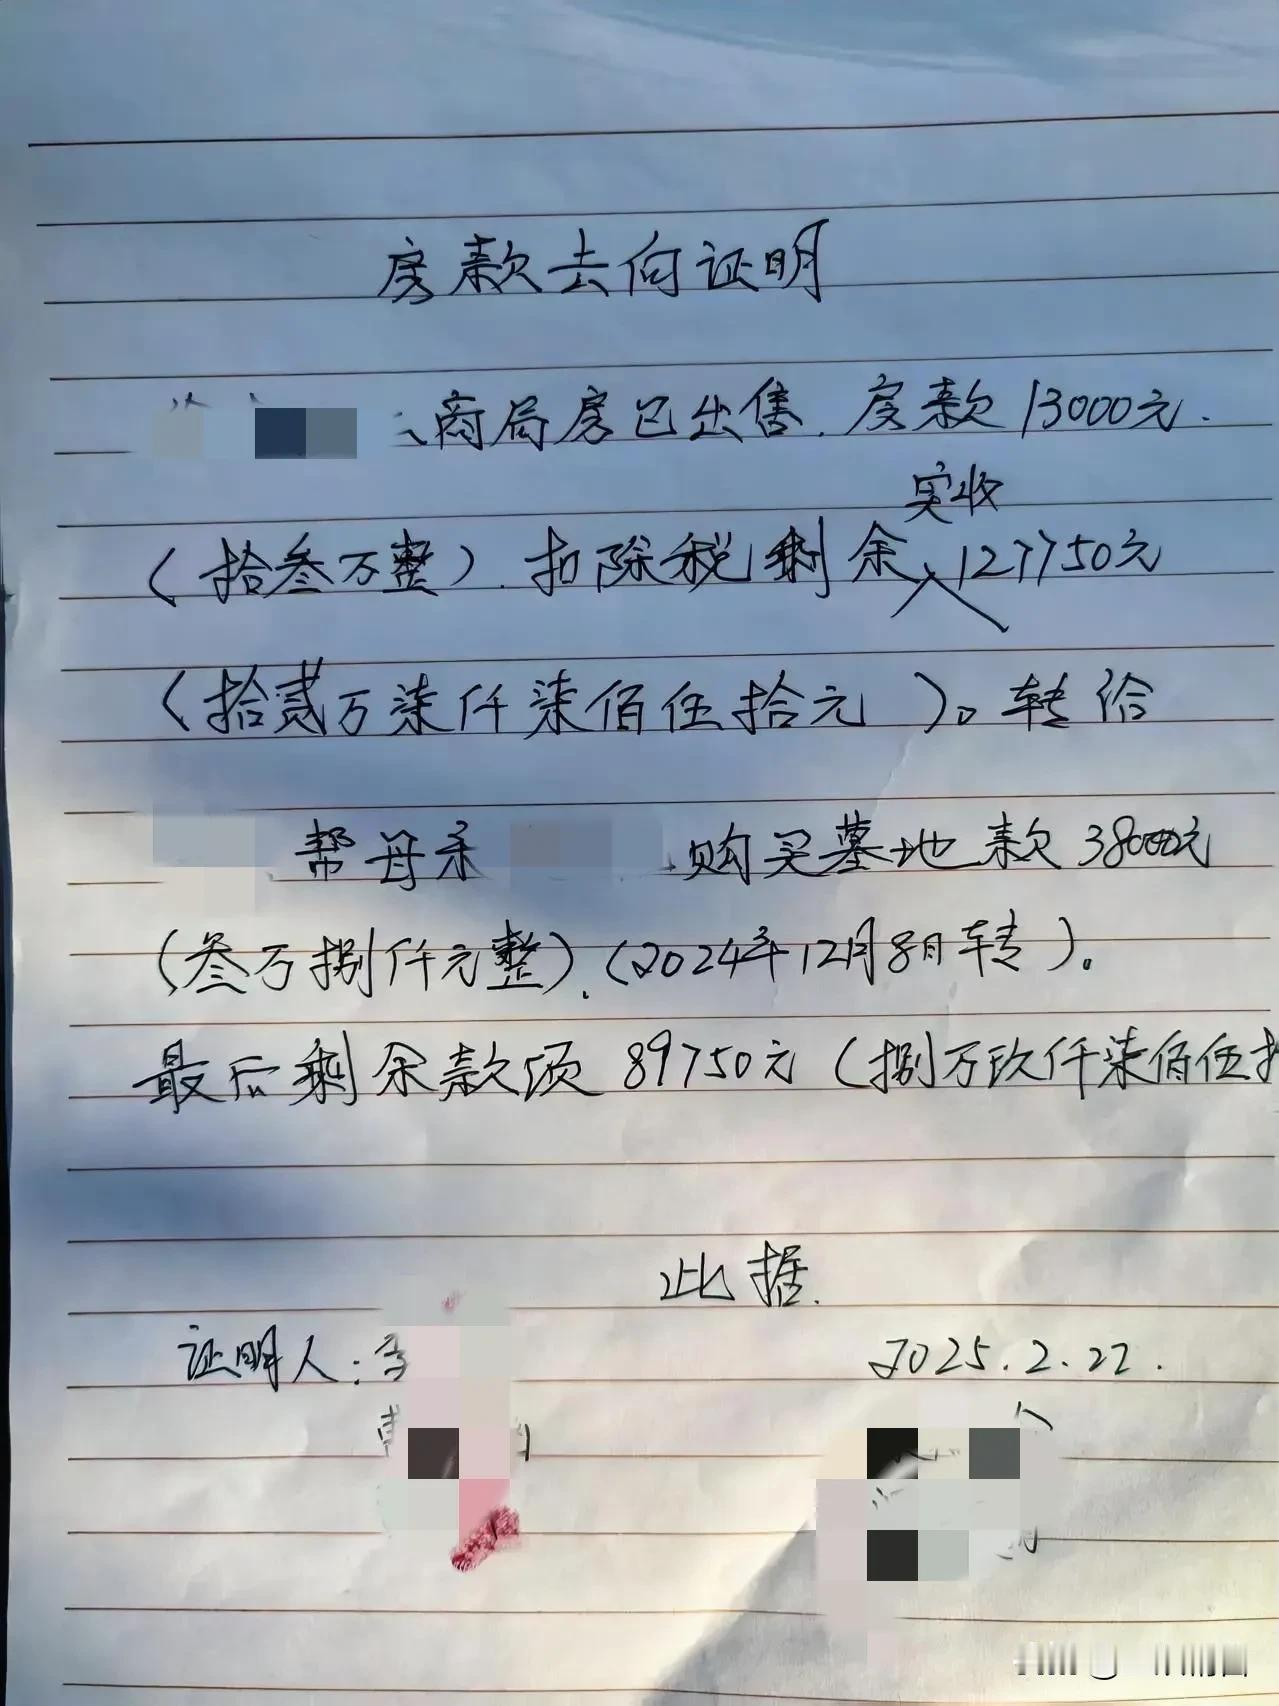 房款去向证明
商局房已出售.房款13000元.
实收
(拾叁万整).扣除税剩余127750元
(拾贰万柒仟柒佰伍拾元)。转给
帮母亲 购买墓地款38000元
(叁万捌仟元整).(2024年12月8日转)。
最后剩余款项89750元(捌万玖仟柒佰伍
此据.
证明人:李
2025.2.22.